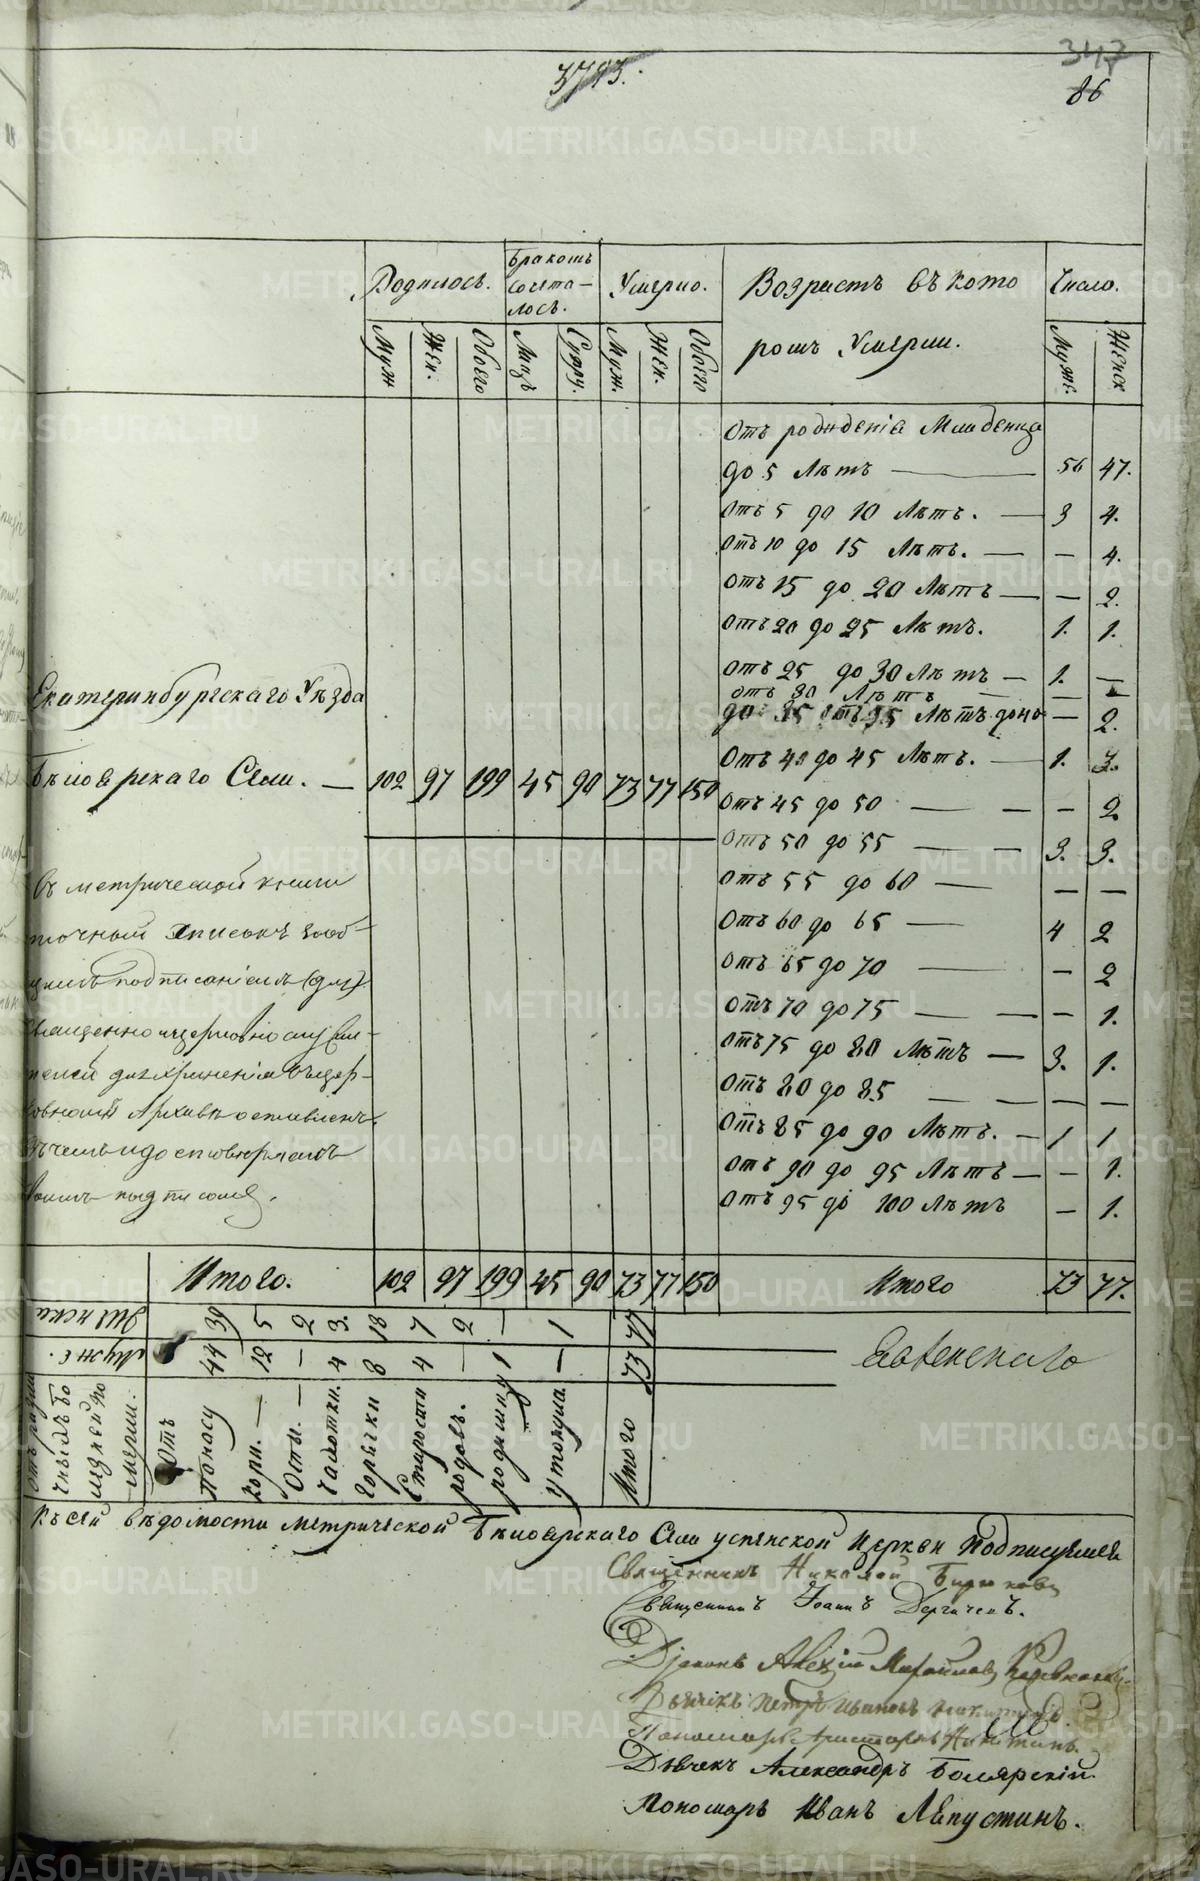 3793.
347
86
Родилось.
Бракомъ
сочета-
лось.
Умерло.
Возрастъ въ кото
ромъ Умерли.
Число.
Муж
Жен.
Обоего
Лицъ
Супру.
Муж.
Жен.
Обоего
Муже.
Женск
Отъ рожденія Младенца
до 5 Лѣтъ — 56 47.
Отъ 5 до 10 Лѣтъ. — 3 4.
Отъ 10 до 15 Лѣтъ. — — 4.
Отъ 15 до 20 Лѣтъ — — 2.
Отъ 20 до 25 Лѣтъ. 1. 1.
Отъ 25 до 30 Лѣтъ — 1. —
отъ 30 Лѣтъ — — —
до 35 отъ 35 Лѣтъ до 40 — 2.
Отъ 40 до 45 Лѣтъ. — 1. 3.
Отъ 45 до 50 — — — 2
Отъ 50 до 55 — — 3. 3.
Отъ 55 до 60 — — —
Отъ 60 до 65 — 4 2
Отъ 65 до 70 — — 2
Отъ 70 до 75 — — — 1.
Отъ 75 до 80 Лѣтъ — 3. 1.
Отъ 80 до 85 — — — —
Отъ 85 до 90 Лѣтъ. — 1 1
Отъ 90 до 95 Лѣтъ — — 1.
Отъ 95 до 100 Лѣтъ — 1.
Екатеринбургскаго Уѣзда
Бѣлоярскаго Села. — 102 97 199 45 90 73 77 150
Въ метрической книги
точный списокъ
подписаніемъ (для)
священно и церковно служи-
телей для храненія въ цер-
ковномъ Архивѣ оставленъ.
въ чемъ и
подписомъ.
Итого. 102 97 199 45 90 73 77 150
Итого 73 77.
Женска 39 5 2 3. 18 7 2 — 1 77
Муже. 44 12 — 4 8 4 — 1 — 73
Отъ
Поносу
Кори. —
Оспы. —
Чахотки.
Горячки
Старости
родовъ.
родимцу
утопша.
Итого
Къ сей вѣдомости метрической Бѣлоярскаго Села успенской Церкви Подписуемся
Священникъ Николай Бирюковъ
Священникъ Іоаннъ
Діаконъ Алексій
Дьячекъ Петръ Ивановъ
Пономарь Аристархъ Никитинъ.
Дьячекъ Александръ Боярскій.
Пономарь Иванъ Лапустинъ.
METRIKI.GASO-URAL.RU